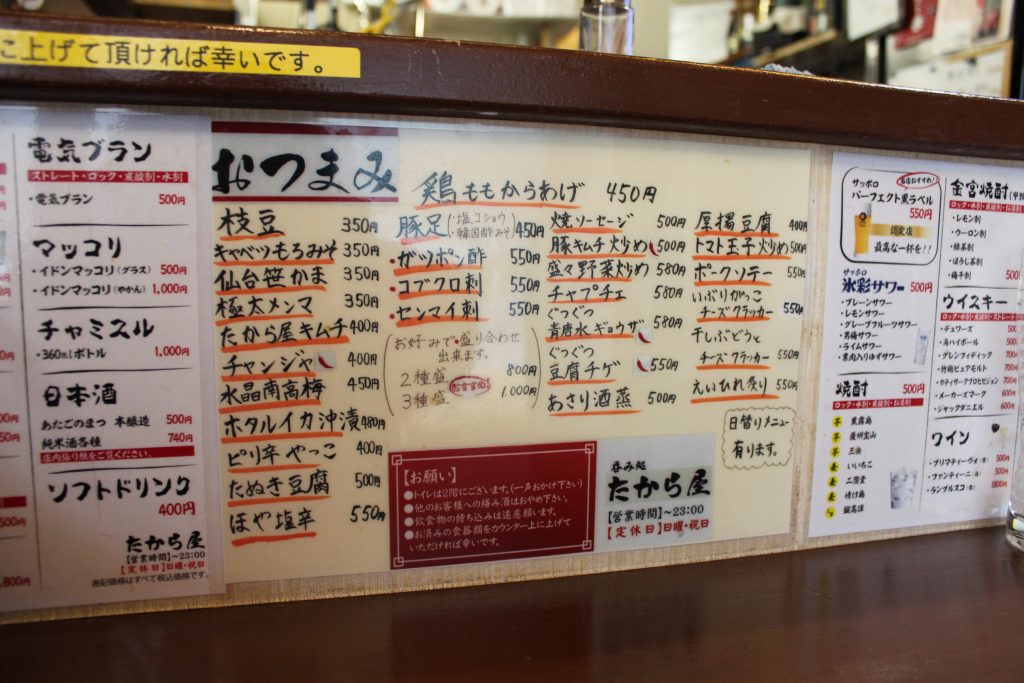 こ上げて頂ければ幸いです。
電気ブラン
ストレート・ロック・炭酸割・水割
・電気ブラン 500円
マッコリ
・イドンマッコリ(グラス) 500円
・イドンマッコリ(やかん) 1,000円
チャミスル
・360mlボトル 1,000円
日本酒
あたごのまつ 本醸造 500円
純米酒各種 740円
店内張り紙をご覧ください。
ソフトドリンク
400円
たから屋
【営業時間】~23:00
【定休日】日曜・祝日
表記価格はすべて税込価格です。
おつまみ
枝豆 350円
キャベツもろみそ 350円
仙台笹かま 350円
極太メンマ 350円
たから屋キムチ 400円
チャンジャ 400円
水晶南高梅 450円
ホタルイカ沖漬 480円
ピリ辛やっこ 400円
たぬき豆腐 500円
ほや塩辛 550円
鶏ももからあげ 450円
豚足(・塩コショウ ・韓国酢みそ) 450円
・ガツポン酢 550円
・コブクロ刺 550円
・センマイ刺 550円
お好みで・盛り合わせ
出来ます。
2種盛 800円
3種盛 おすすめ! 1,000円
焼ソーセージ 500円
豚キムチ炒め 500円
盛々野菜炒め 580円
チャプチェ 580円
ぐつぐつ
青唐水ギョウザ 580円
ぐつぐつ
豆腐チゲ 550円
あさり酒蒸 500円
厚揚豆腐 400円
トマト玉子炒め 500円
ポークソテー 550円
いぶりがっこ
チーズクラッカー 550円
干しぶどうと
チーズクラッカー 550円
えいひれ炙り 550円
日替りメニュー
有ります。
【お願い】
●トイレは2階にございます。(一声おかけ下さい)
●他のお客様への絡み酒はおやめ下さい。
●飲食物の持ち込みは遠慮願います。
●お済みの食器類をカウンター上に上げて
いただければ幸いです。
呑み処
たから屋
【営業時間】~23:00
【定休日】日曜・祝日
当店おすすめ!
サッポロ
パーフェクト黒ラベル
550円
認定店
最高な一杯を!!
サッポロ
氷彩サワー 500円
・プレーンサワー
・レモンサワー
・グレープフルーツサワー
・男梅サワー
・ライムサワー
・果肉入りゆずサワー
焼酎 500円
ロック・水割・炭酸割・お湯割
芋 黒霧島
芋 薩州宝山
芋 三岳
麦 いいちこ
麦 二階堂
麦 情け島
銀高洋
金宮焼酎
・レモン割
・ウーロン割
・緑茶割
・ほうじ茶割
・梅干割 500円
ウイスキー
・デュワーズ 500
・角ハイボール 500
・グレンフィディック 700
・竹鶴ピュアモルト 700
・カティサークプロヒビション 700
・メーカーズマーク 600
・ジャックダニエル 600
ワイン
・プリマティーヴォ(赤) 500
・ファンティーニ(白) 500
・ランブルスコ(赤) 1800